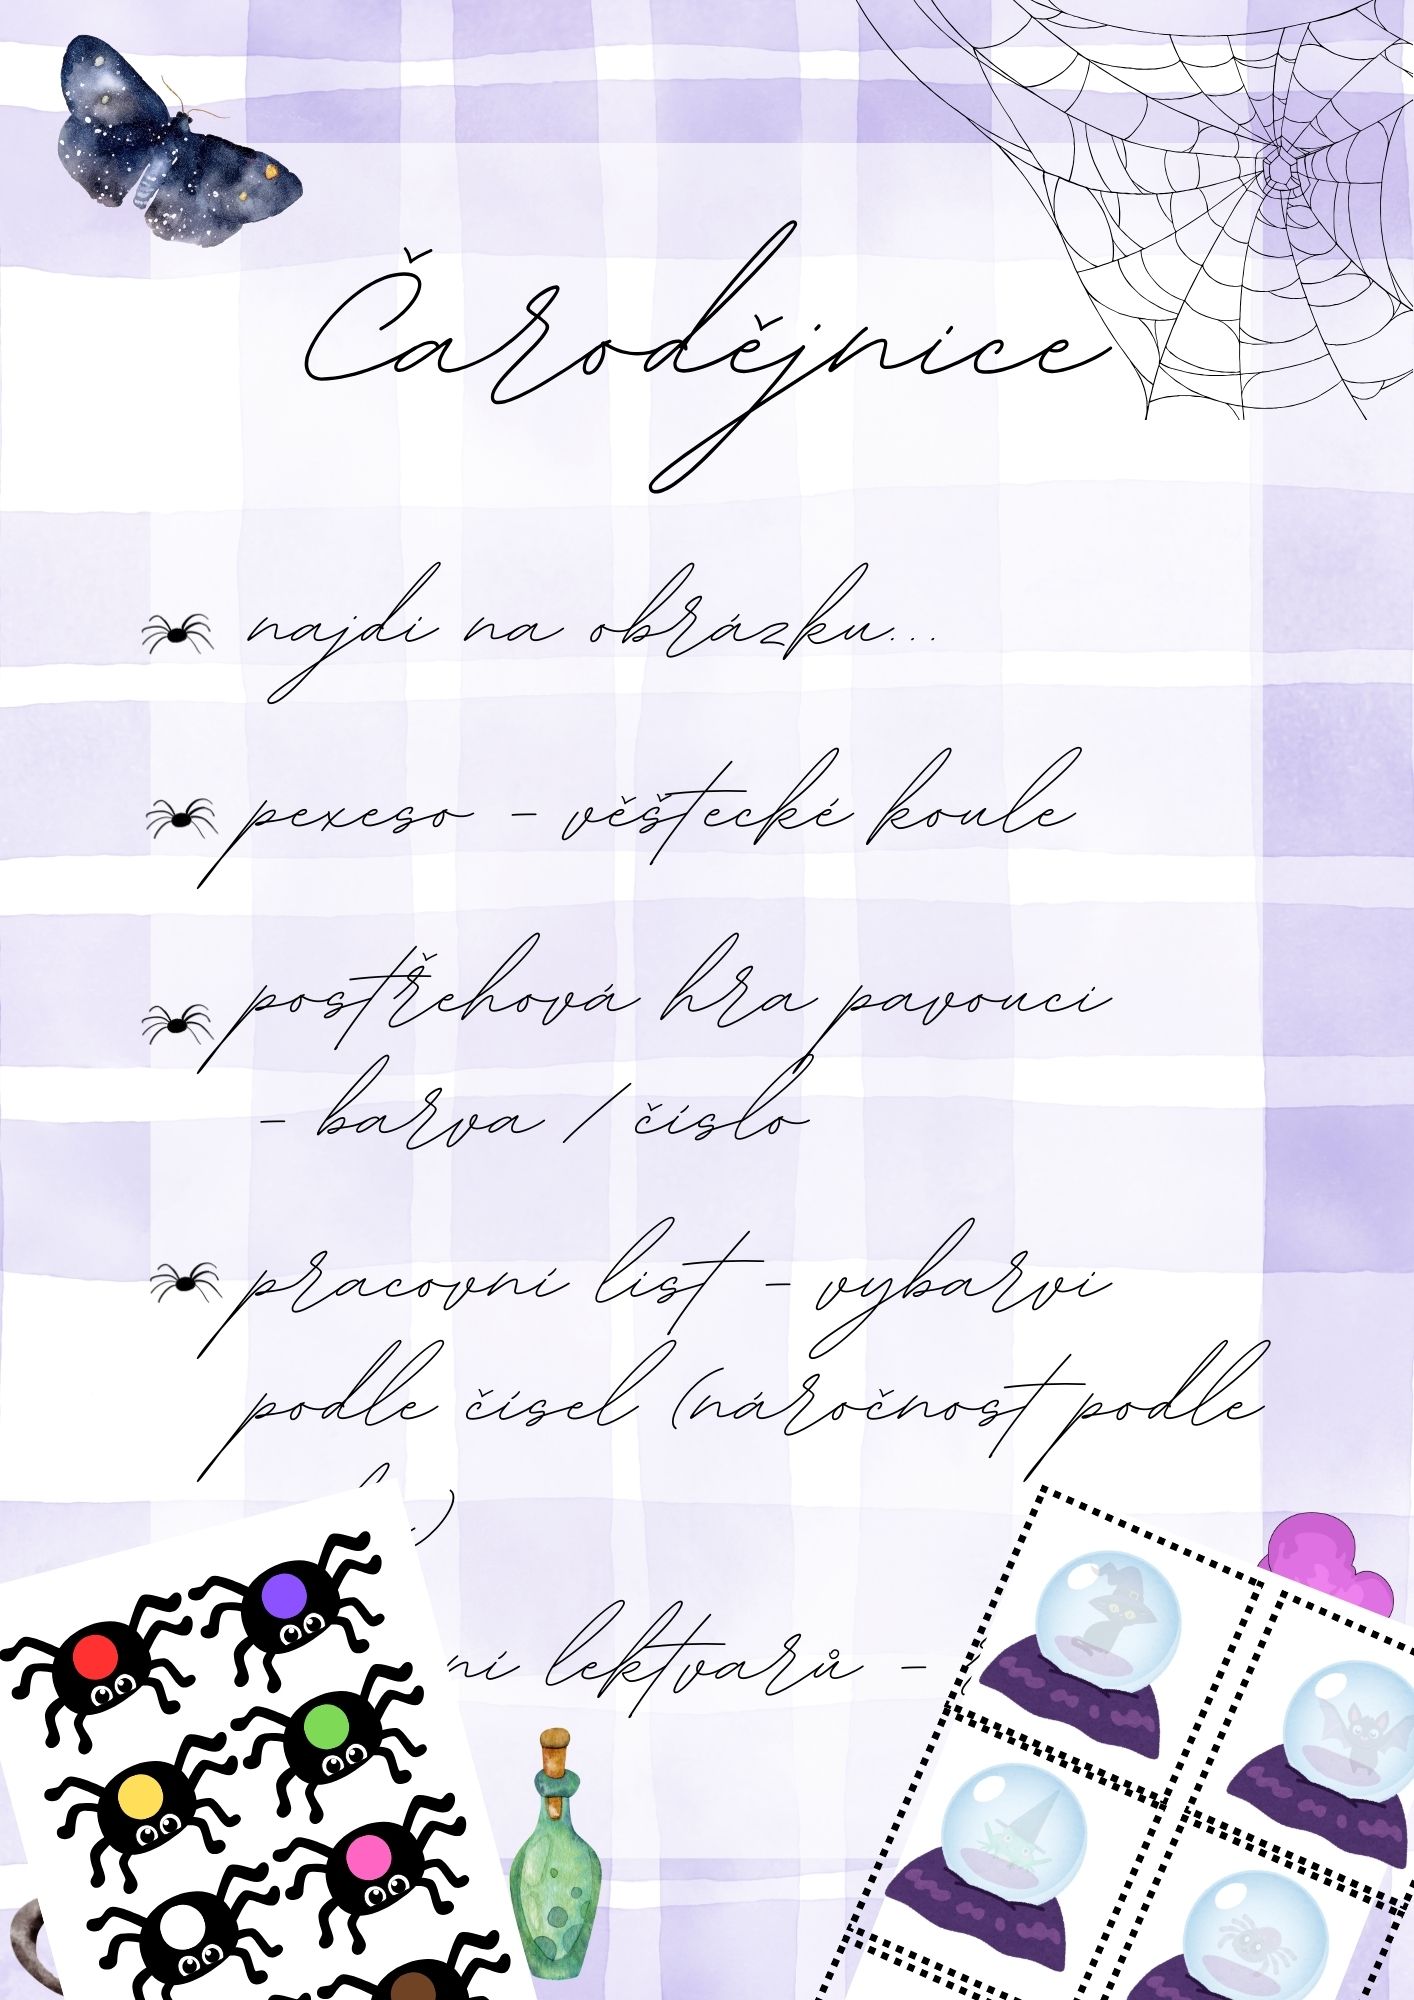 Čarodějnice
najdi na obrázku...
pexeso - věštecké koule
postřehová hra pavouci
- barva / číslo
pracovní list - vybarvi
podle čísel (náročnost podle
lektvarů -